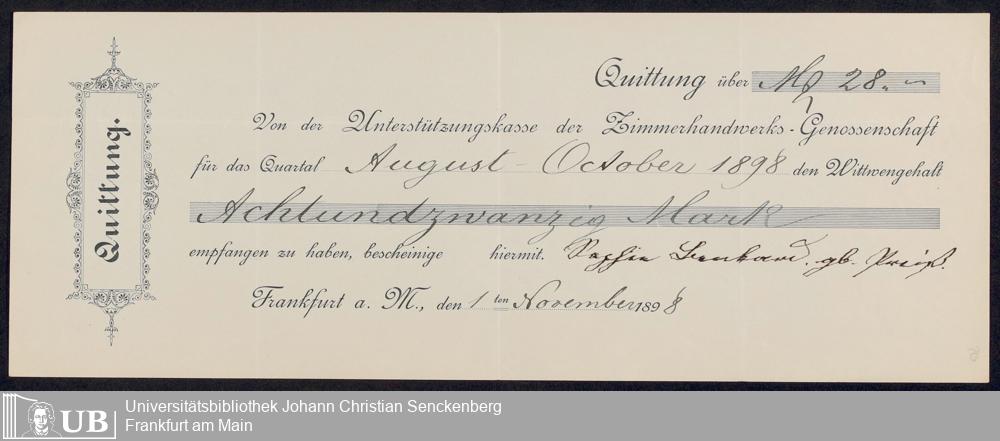 Quittung.
Quittung über Mk 28.
Von der Unterstützungskasse der Zimmerhandwerks-Genossenschaft
für das Quartal August - October 1898 den Wittwengehalt
Achtundzwanzig Mark
empfangen zu haben, bescheinige hiermit. Sophie gb.
Frankfurt a. M., den 1ten November 1898
UB
Universitätsbibliothek Johann Christian Senckenberg
Frankfurt am Main